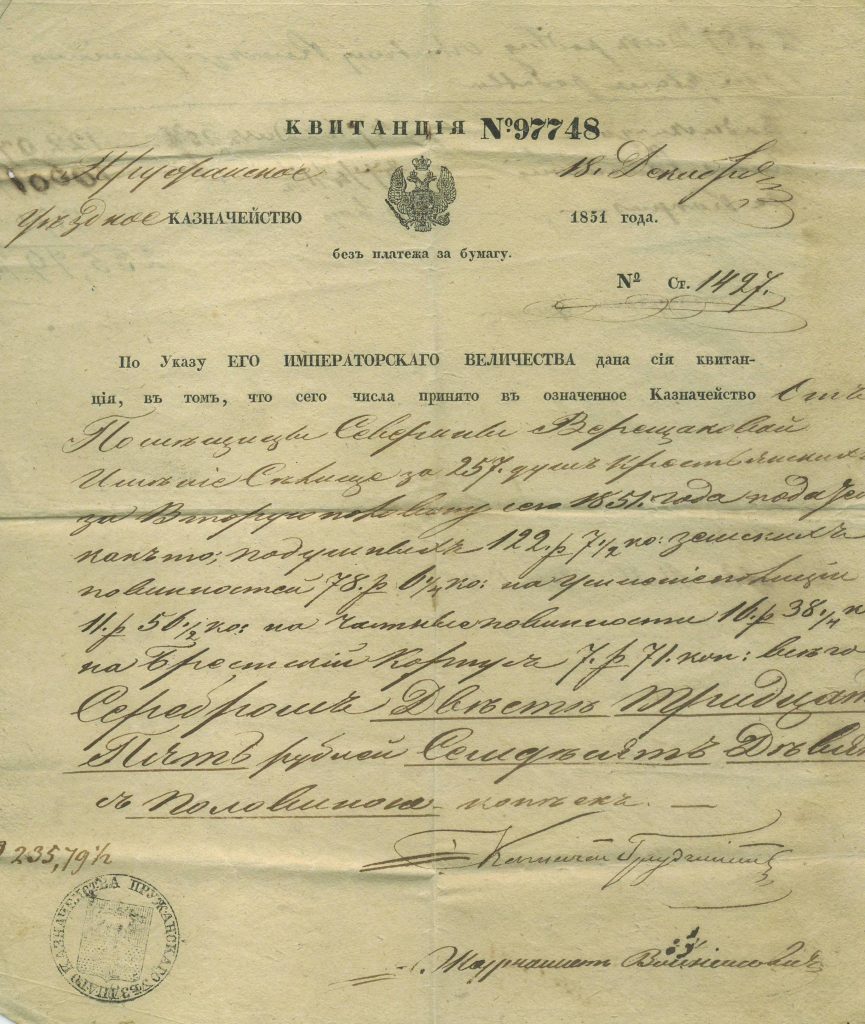 КВИТАНЦІЯ №97748
Пружанское 18. Декабря
Уѣздное КАЗНАЧЕЙСТВО 1851 года.
безъ платежа за бумагу.
№ Ст. 1427.
По Указу ЕГО ИМПЕРАТОРСКАГО ВЕЛИЧЕСТВА дана сія квитан-
ція, въ томъ, что сего числа принято въ означенное Казначейство Отъ
Помѣщицы Северины Верещаковой
Имѣніе Сѣлище за 257. душъ крестьянскихъ
за Вторую половину сего 1851. года
какъ то; подушныхъ 122. р 7 1/2 ко: земскихъ
повинностей 78. р 6 1/4 ко: на Усиленіе полиціи
11. р 56 1/2 ко: на Частные повинности 16. р 38 1/4 к
на Брестскій Корпусъ 7. р 71. коп: всего
Серебромъ Двѣсти Тридцать
Пять рублей Семдѣсятъ Девять
съ Половиною копѣекъ. —
235,79 1/2
Казначей
Журналистъ
КАЗНАЧЕЙСТВА ПРУЖАНСКАГО УѢЗДНАГО